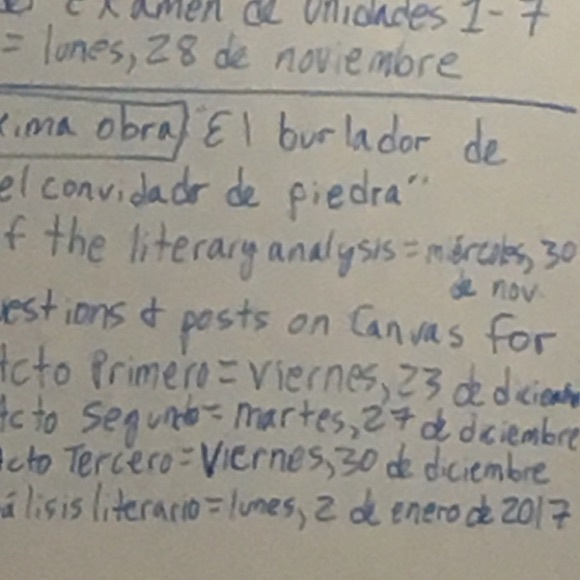 examen de Unidades 1-7
= lunes, 28 de noviembre
xima obra) "El burlador de
el convidado de piedra"
f the literary analysis = miércoles, 30
de nov.
estions & posts on Canvas for
Acto Primero = viernes, 23 de diciembre
Acto Segundo = martes, 27 de diciembre
cto Tercero = Viernes, 30 de diciembre
álisis literario = lunes, 2 de enero de 2017